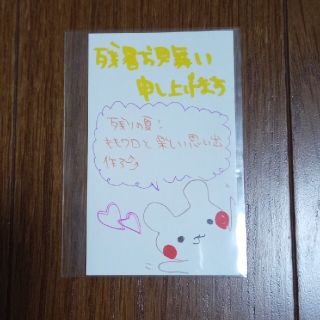 残暑お見舞い
申し上げます
残りの夏！
ももクロと楽しい思い出
作ろう